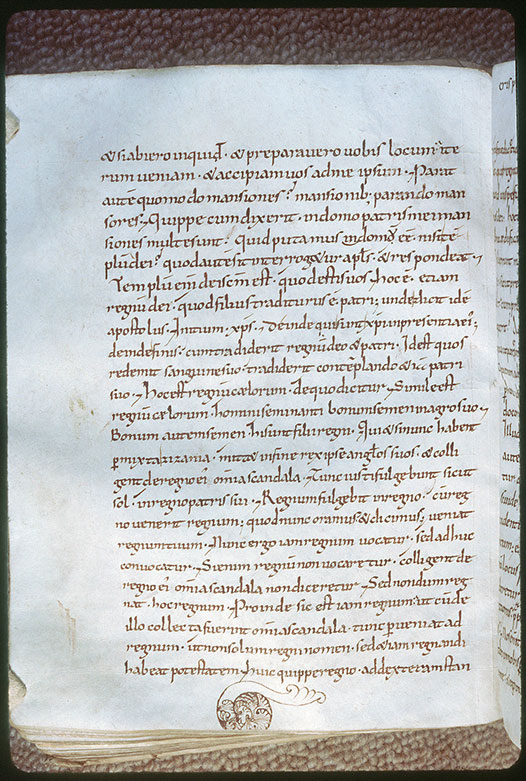 & si abiero inquid · & preparavero vobis locum · ite
rum veniam · & accipiam vos ad me ipsum · Parat
autē quomodo mansiones? mansionib; parando man
sores · Quippe cum dixerit · in domo patris mei man
siones multe sunt · quid putamus in domo dī eē · nisi tē
plū dei? quod aut sit interrog&ur apłs · & respondeat ·
Templū enī dei scm̄ est · quod estis vos · hoc ē · etiam
regnū dei · quod filius traditurus ē patri; unde dicit idē
apostolus · Initium · xp̄s · deinde qui sunt xp̄i in presentia ei';
deinde finis · cum tradiderit regnū deo & patri · Id est quos
redemit sanguine suo · tradiderit contēplando & iā patri
suo · hoc est regnū cælorum · de quo dicitur · Simile est
regnū cælorum homini seminanti bonum semen in agro suo ·
Bonum autem semen · hi sunt filii regni · Qui & si nunc habent
pmixta zizania · mitt& in fine rex ipse angłos suos · & colli
gent de regno ei' omia scandala · Tunc iusti fulgebunt sicut
sol · in regno patris sui · Regnum fulgebit in regno · cū reg
no venerit regnum; quod nunc oramus & dicimus; veniat
regnum tuum · Nunc ergo iam regnum vocatur · sed adhuc
convocatur · Si enim regnū non vocaretur · colligent de
regno ei' omia scandala non diceretur · Sed nondum reg
nat · hoc regnum · Proinde sic est iam regnum · ut cū de
illo collecta fuerint omia scandala · tunc pveniat ad
regnum · ut non solum regni nomen · sed & iam regnandi
habeat potestatem · huic quippe regno · ad dexteram stan